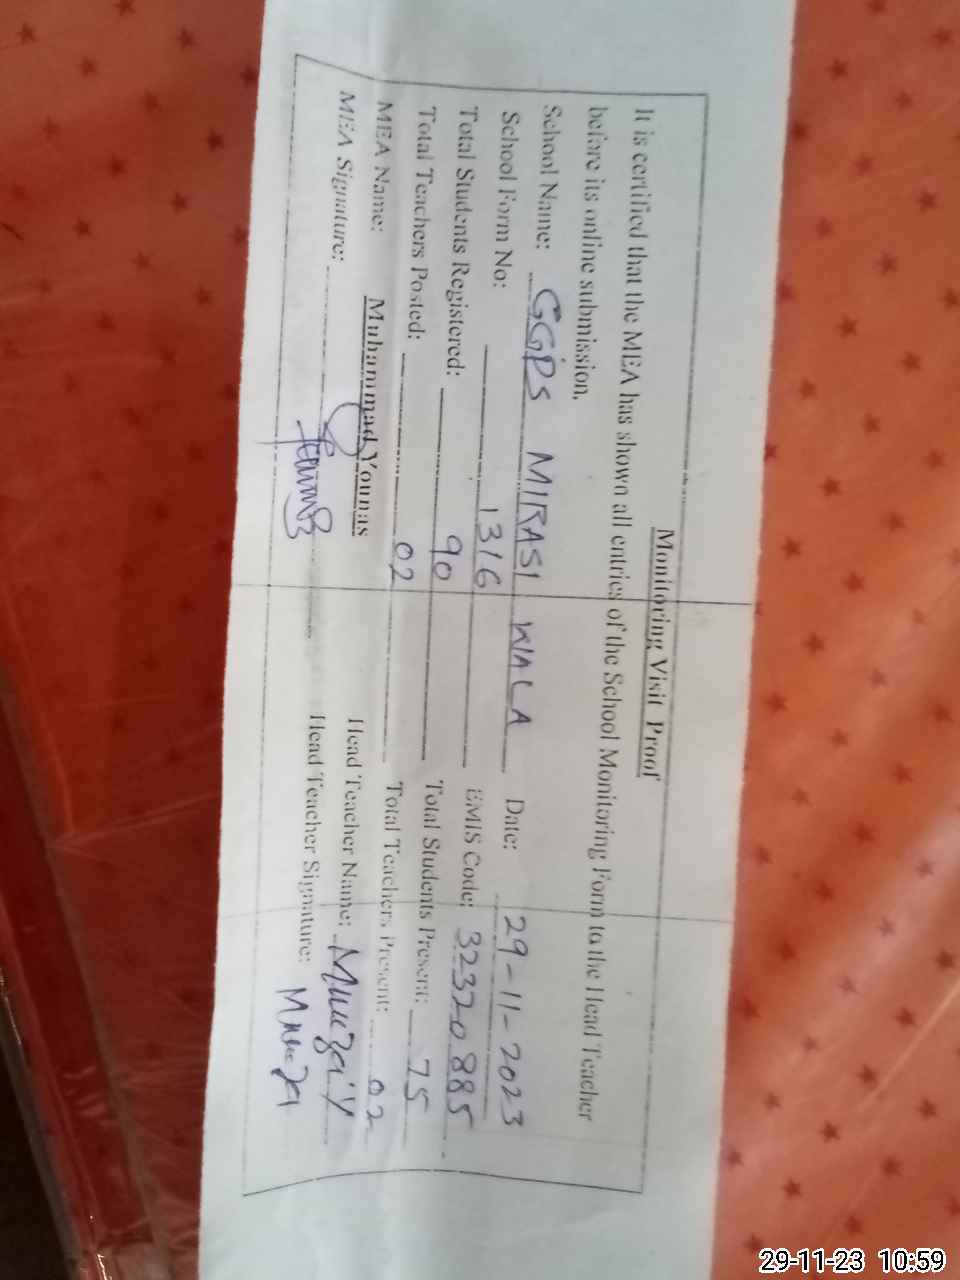 Monitoring Visit Proof
It is certified that the MEA has shown all entries of the School Monitoring Form to the Head Teacher
before its online submission.
School Name: GGPS MIRASI WALA Date: 29-11-2023
School Form No: 1316 EMIS Code: 32320885
Total Students Registered: 90 Total Students Present: 75
Total Teachers Posted: 02 Total Teachers Present: 02
MEA Name: Muhammad Younas Head Teacher Name:
MEA Signature: Head Teacher Signature:
29-11-23 10:59